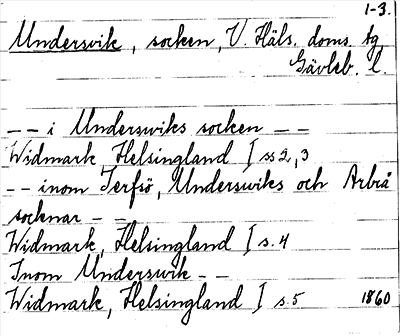 1-3.
Undersvik, socken, V. Häls. doms. tg
Gävleb. l.
-- i Underswiks socken --
Widmark, Helsingland I ss 2, 3
-- inom Jerfsö, Underswiks och Arbrå
socknar --
Widmark, Helsingland I s. 4
Inom Underswik --
Widmark, Helsingland I s. 5 1860